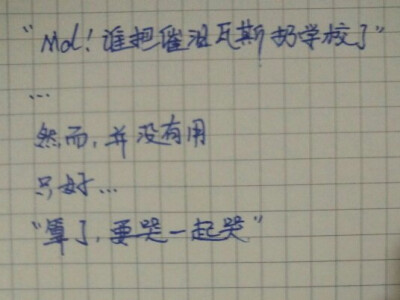 "Md！谁把催泪瓦斯扔学校了"
...
然而，并没有用
只好...
"算了，要哭一起哭"